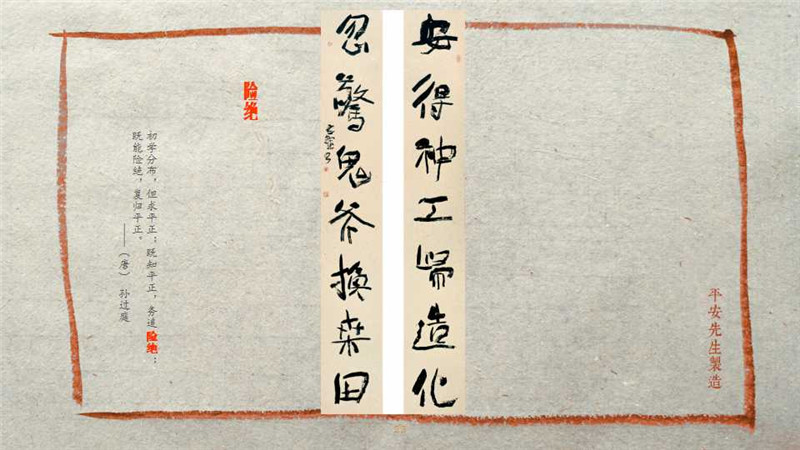 平安先生製造
安得神工造化
忽驚鬼斧換桒田
险绝
初学分布，但求平正；既知平正，务追险绝；
既能险绝，复归平正。
——（唐）孙过庭